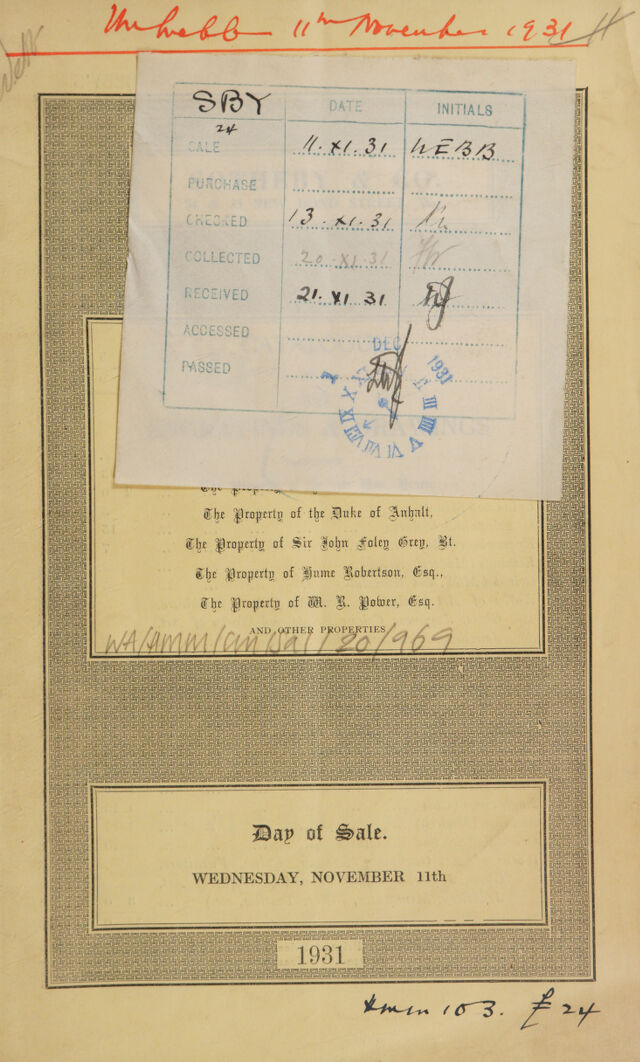 Mr Webb 11th November 1931
Webb
SBY DATE INITIALS
24
SALE 11.XI.31 WEBB
PURCHASE
CHECKED 13.XI.31
COLLECTED 20.XI.31
RECEIVED 21.XI 31
ACCESSED
PASSED
DEC 1931
The Property of the Duke of Anhalt,
The Property of Sir John Foley Grey, Bt.
The Property of Hume Robertson, Esq.,
The Property of W. R. Power, Esq.
AND OTHER PROPERTIES
WA/HMM/CM/Sal/20/969
Day of Sale.
WEDNESDAY, NOVEMBER 11th
1931
Hmm 103. £24